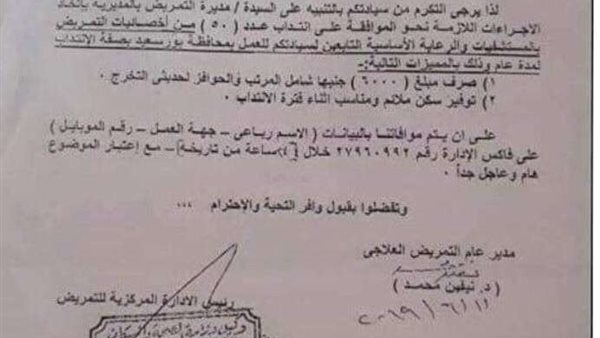 لذا يرجى التكرم من سيادتكم بالتنبيه على السيدة / مديرة التمريض بالمديرية بإتخاذ
الاجراءات اللازمة نحو الموافقة على انتداب عدد (٥٠) من أخصائيات التمريض
بالمستشفيات والرعاية الأساسية التابعين لسيادتكم للعمل بمحافظة بورسعيد بصفة الانتداب
لمدة عام وذلك بالمميزات التالية:-
١) صرف مبلغ (٦٠٠٠) جنيها شامل المرتب والحوافز لحديثى التخرج .
٢) توفير سكن ملائم ومناسب اثناء فترة الانتداب .
على ان يتم موافاتنا بالبيانات (الاسم رباعى – جهة العمل – رقم الموبايل)
على فاكس الإدارة رقم ٢٧٩٦٠٩٩٢ خلال ساعة من تاريخه – مع إعتبار الموضوع
هام وعاجل جداً .
وتفضلوا بقبول وافر التحية والإحترام ...
مدير عام التمريض العلاجى
(د. نيفين محمد)
٢٠١٩/٦/١١
رئيس الادارة المركزية للتمريض